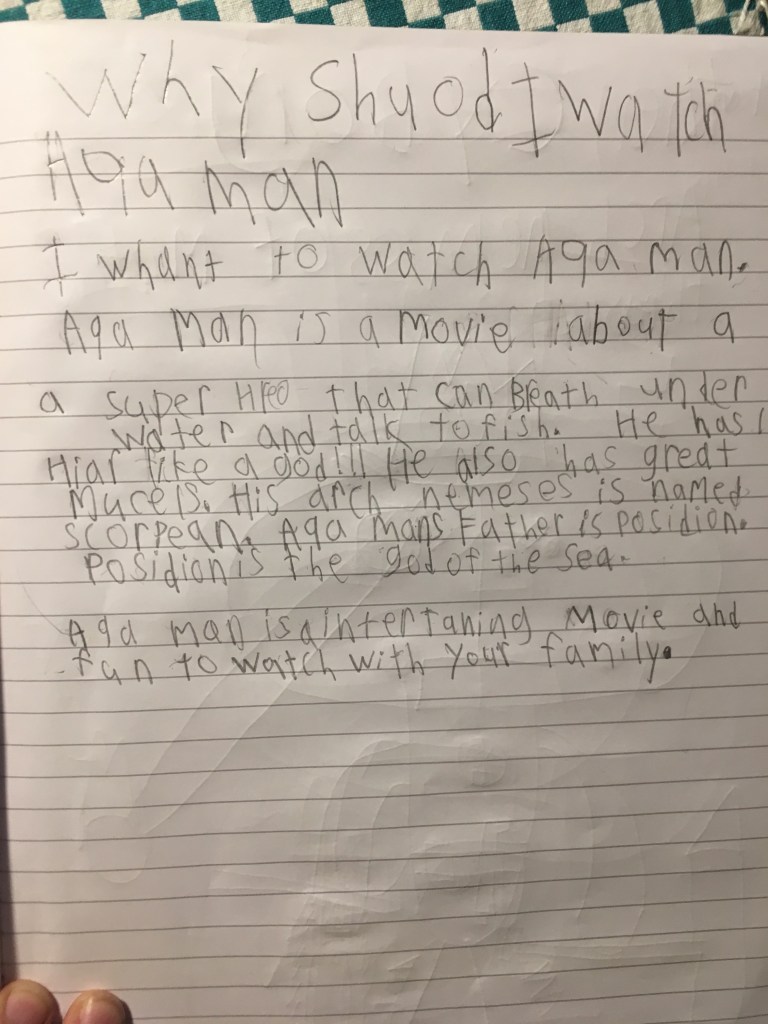 Why Shuod I watch
Aqa man
I whant to watch Aqa man.
Aqa Man is a movie about a
a super Hreo that can Breath under
water and talk to fish. He has
Hiar like a god!!! He also has great
Mucels. His arch nemeses is named
scorpean. Aqa mans Father is posidion.
Posidion is the god of the sea.
Aqa man is a intertaning Movie and
fun to watch with your family.